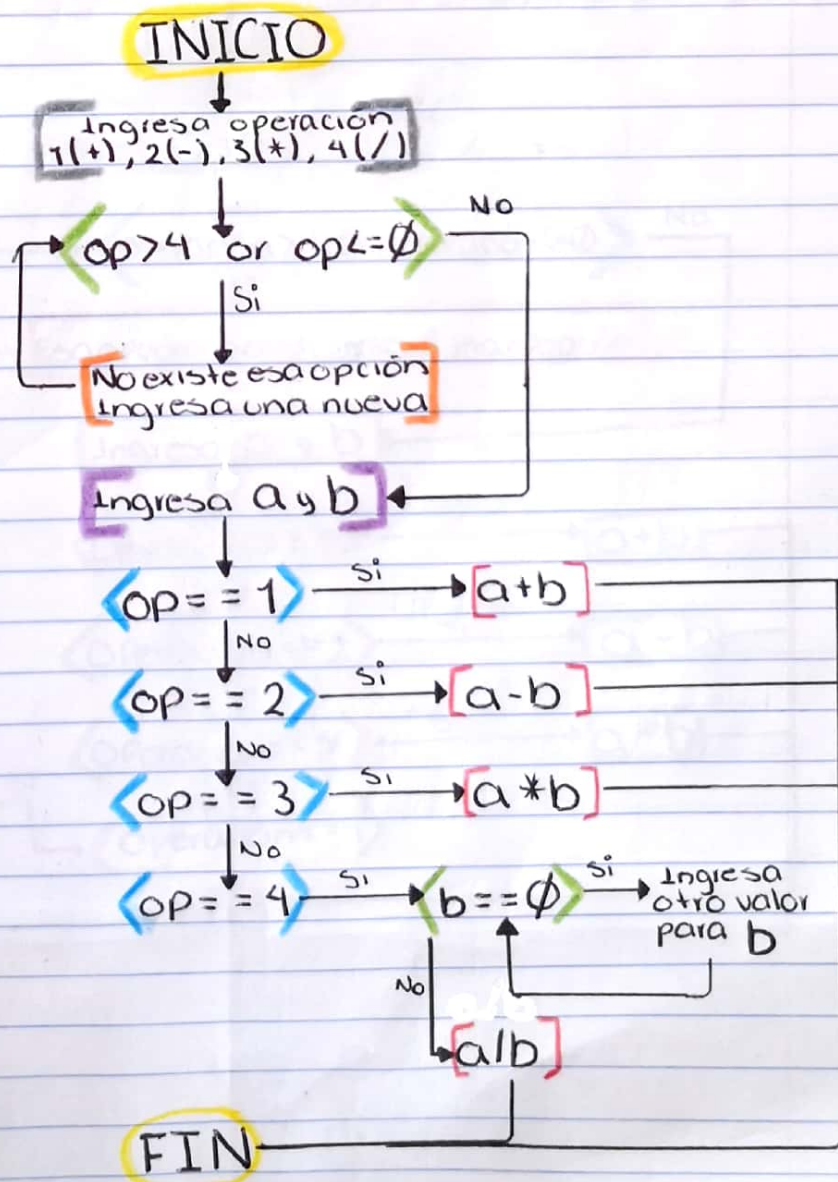 INICIO
Ingresa operación
1(+), 2(-), 3(*), 4(/)
No
op>4 or op<=Ø
Si
No existe esa opción
Ingresa una nueva
Ingresa a y b
op==1
Si
a+b
No
op==2
Si
a-b
No
op==3
Si
a*b
No
op==4
Si
b==Ø
Si
Ingresa
otro valor
para b
No
a/b
FIN